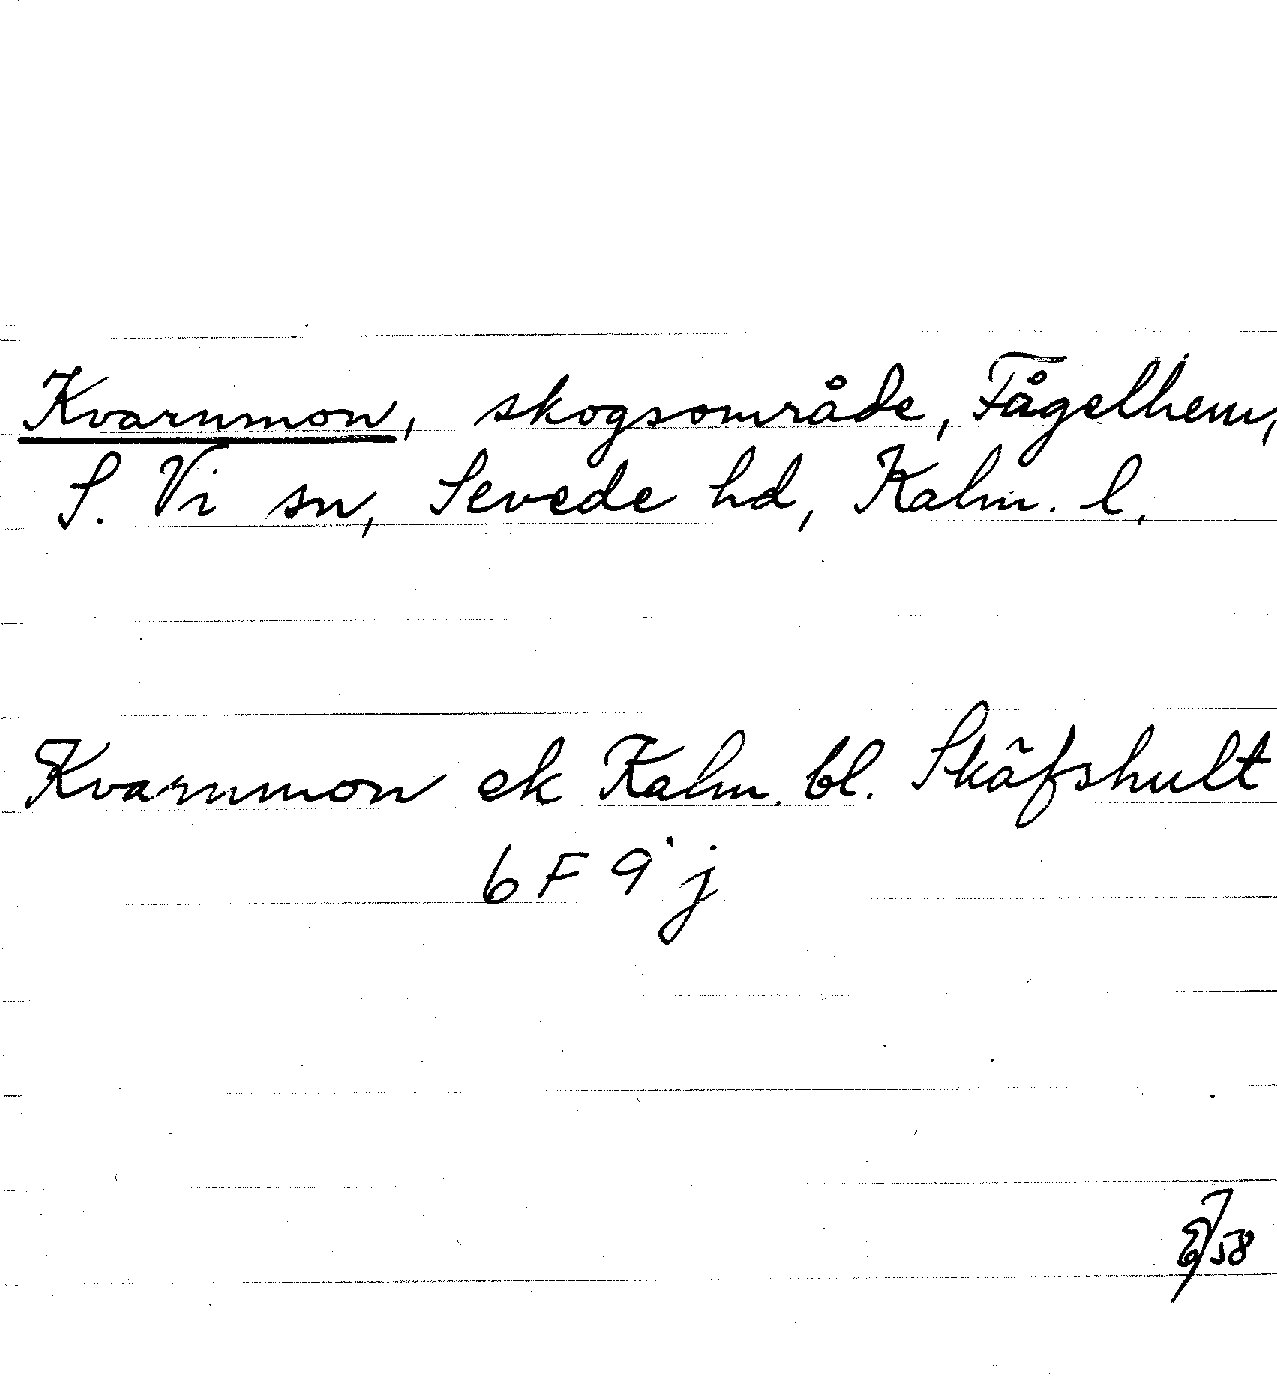 Kvarnmon, skogsområde, Fågelhem,
S. Vi sn, Sevede hd, Kalm. l.
Kvarnmon ek Kalm. bl. Skäfshult
6 F 9 j